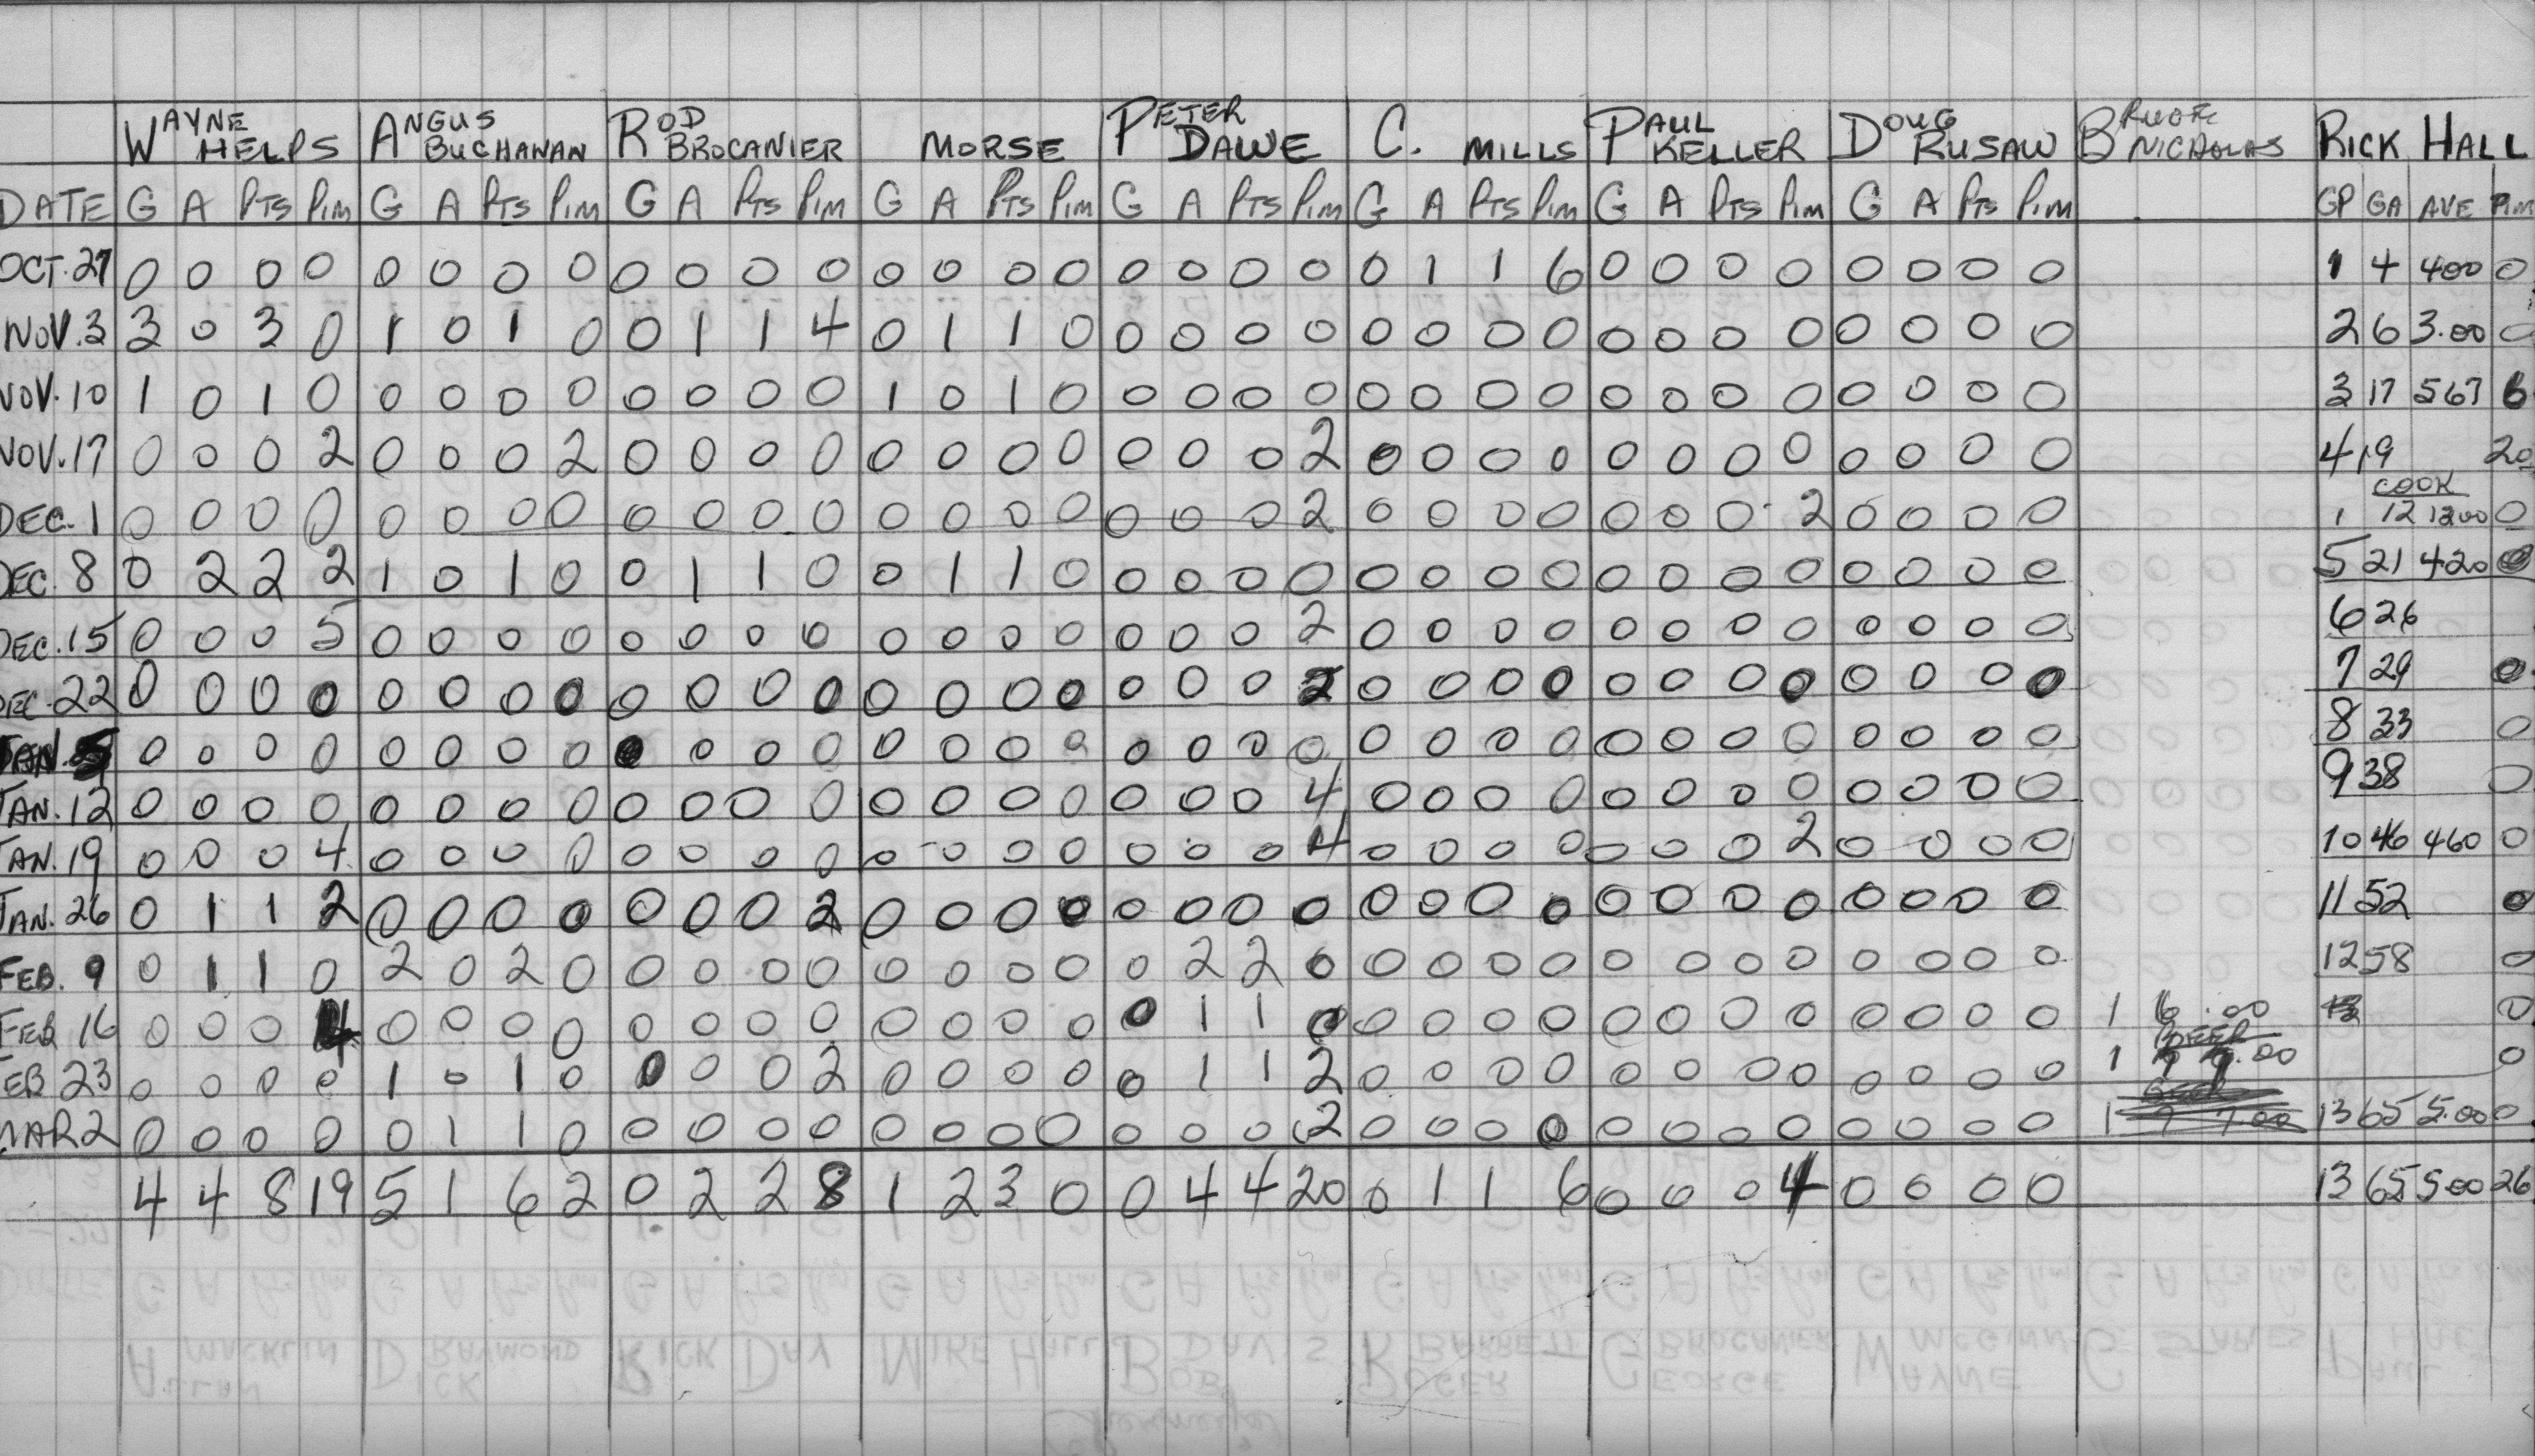 WAYNE HELPS ANGUS BUCHANAN ROD BROCANIER MORSE PETER DAWE C. MILLS PAUL KELLER DOUG RUSAW NICHOLAS RICK HALL
DATE G A PTS PIM G A PTS PIM G A PTS PIM G A PTS PIM G A PTS PIM G A PTS PIM G A PTS PIM G A PTS PIM GP GA AVE PIM
OCT. 27 0 0 0 0 0 0 0 0 0 0 0 0 0 0 0 0 0 0 0 0 0 1 1 6 0 0 0 0 0 0 0 0 1 4 400 0
NOV. 3 3 0 3 0 1 0 1 0 0 1 1 4 0 1 1 0 0 0 0 0 0 0 0 0 0 0 0 0 0 0 0 0 2 6 3.00 0
NOV. 10 1 0 1 0 0 0 0 0 0 0 0 0 1 0 1 0 0 0 0 0 0 0 0 0 0 0 0 0 0 0 0 0 3 17 567 6
NOV. 17 0 0 0 2 0 0 0 2 0 0 0 0 0 0 0 0 0 0 0 2 0 0 0 0 0 0 0 0 0 0 0 0 4 19 20
COOK
DEC. 1 0 0 0 0 0 0 0 0 0 0 0 0 0 0 0 0 0 0 0 2 0 0 0 0 0 0 0 2 0 0 0 0 1 12 1200 0
DEC. 8 0 2 2 2 1 0 1 0 0 1 1 0 0 1 1 0 0 0 0 0 0 0 0 0 0 0 0 0 0 0 0 0 5 21 420 0
DEC. 15 0 0 0 5 0 0 0 0 0 0 0 0 0 0 0 0 0 0 0 2 0 0 0 0 0 0 0 0 0 0 0 0 6 26
DEC. 22 0 0 0 0 0 0 0 0 0 0 0 0 0 0 0 0 0 0 0 2 0 0 0 0 0 0 0 0 0 0 0 0 7 29 0
JAN. 5 0 0 0 0 0 0 0 0 0 0 0 0 0 0 0 0 0 0 0 0 0 0 0 0 0 0 0 0 0 0 0 0 8 33 0
JAN. 12 0 0 0 0 0 0 0 0 0 0 0 0 0 0 0 0 0 0 0 4 0 0 0 0 0 0 0 0 0 0 0 0 9 38 0
JAN. 19 0 0 0 4 0 0 0 0 0 0 0 0 0 0 0 0 0 0 0 4 0 0 0 0 0 0 0 2 0 0 0 0 10 46 460 0
JAN. 26 0 1 1 2 0 0 0 0 0 0 0 2 0 0 0 0 0 0 0 0 0 0 0 0 0 0 0 0 0 0 0 0 11 52 0
FEB. 9 0 1 1 0 2 0 2 0 0 0 0 0 0 0 0 0 0 2 2 0 0 0 0 0 0 0 0 0 0 0 0 0 12 58 0
FEB 16 0 0 0 4 0 0 0 0 0 0 0 0 0 0 0 0 0 1 1 0 0 0 0 0 0 0 0 0 0 0 0 0 1 6 .00 0
BEER
FEB 23 0 0 0 0 1 0 1 0 0 0 0 2 0 0 0 0 0 1 1 2 0 0 0 0 0 0 0 0 0 0 0 0 1 9 9.00 0
MAR 2 0 0 0 0 0 1 1 0 0 0 0 0 0 0 0 0 0 0 0 2 0 0 0 0 0 0 0 0 0 0 0 0 1 7 7.00 13 65 5.00 0
4 4 8 19 5 1 6 2 0 2 2 8 1 2 3 0 0 4 4 20 0 1 1 6 0 0 0 4 0 0 0 0 13 65 500 26